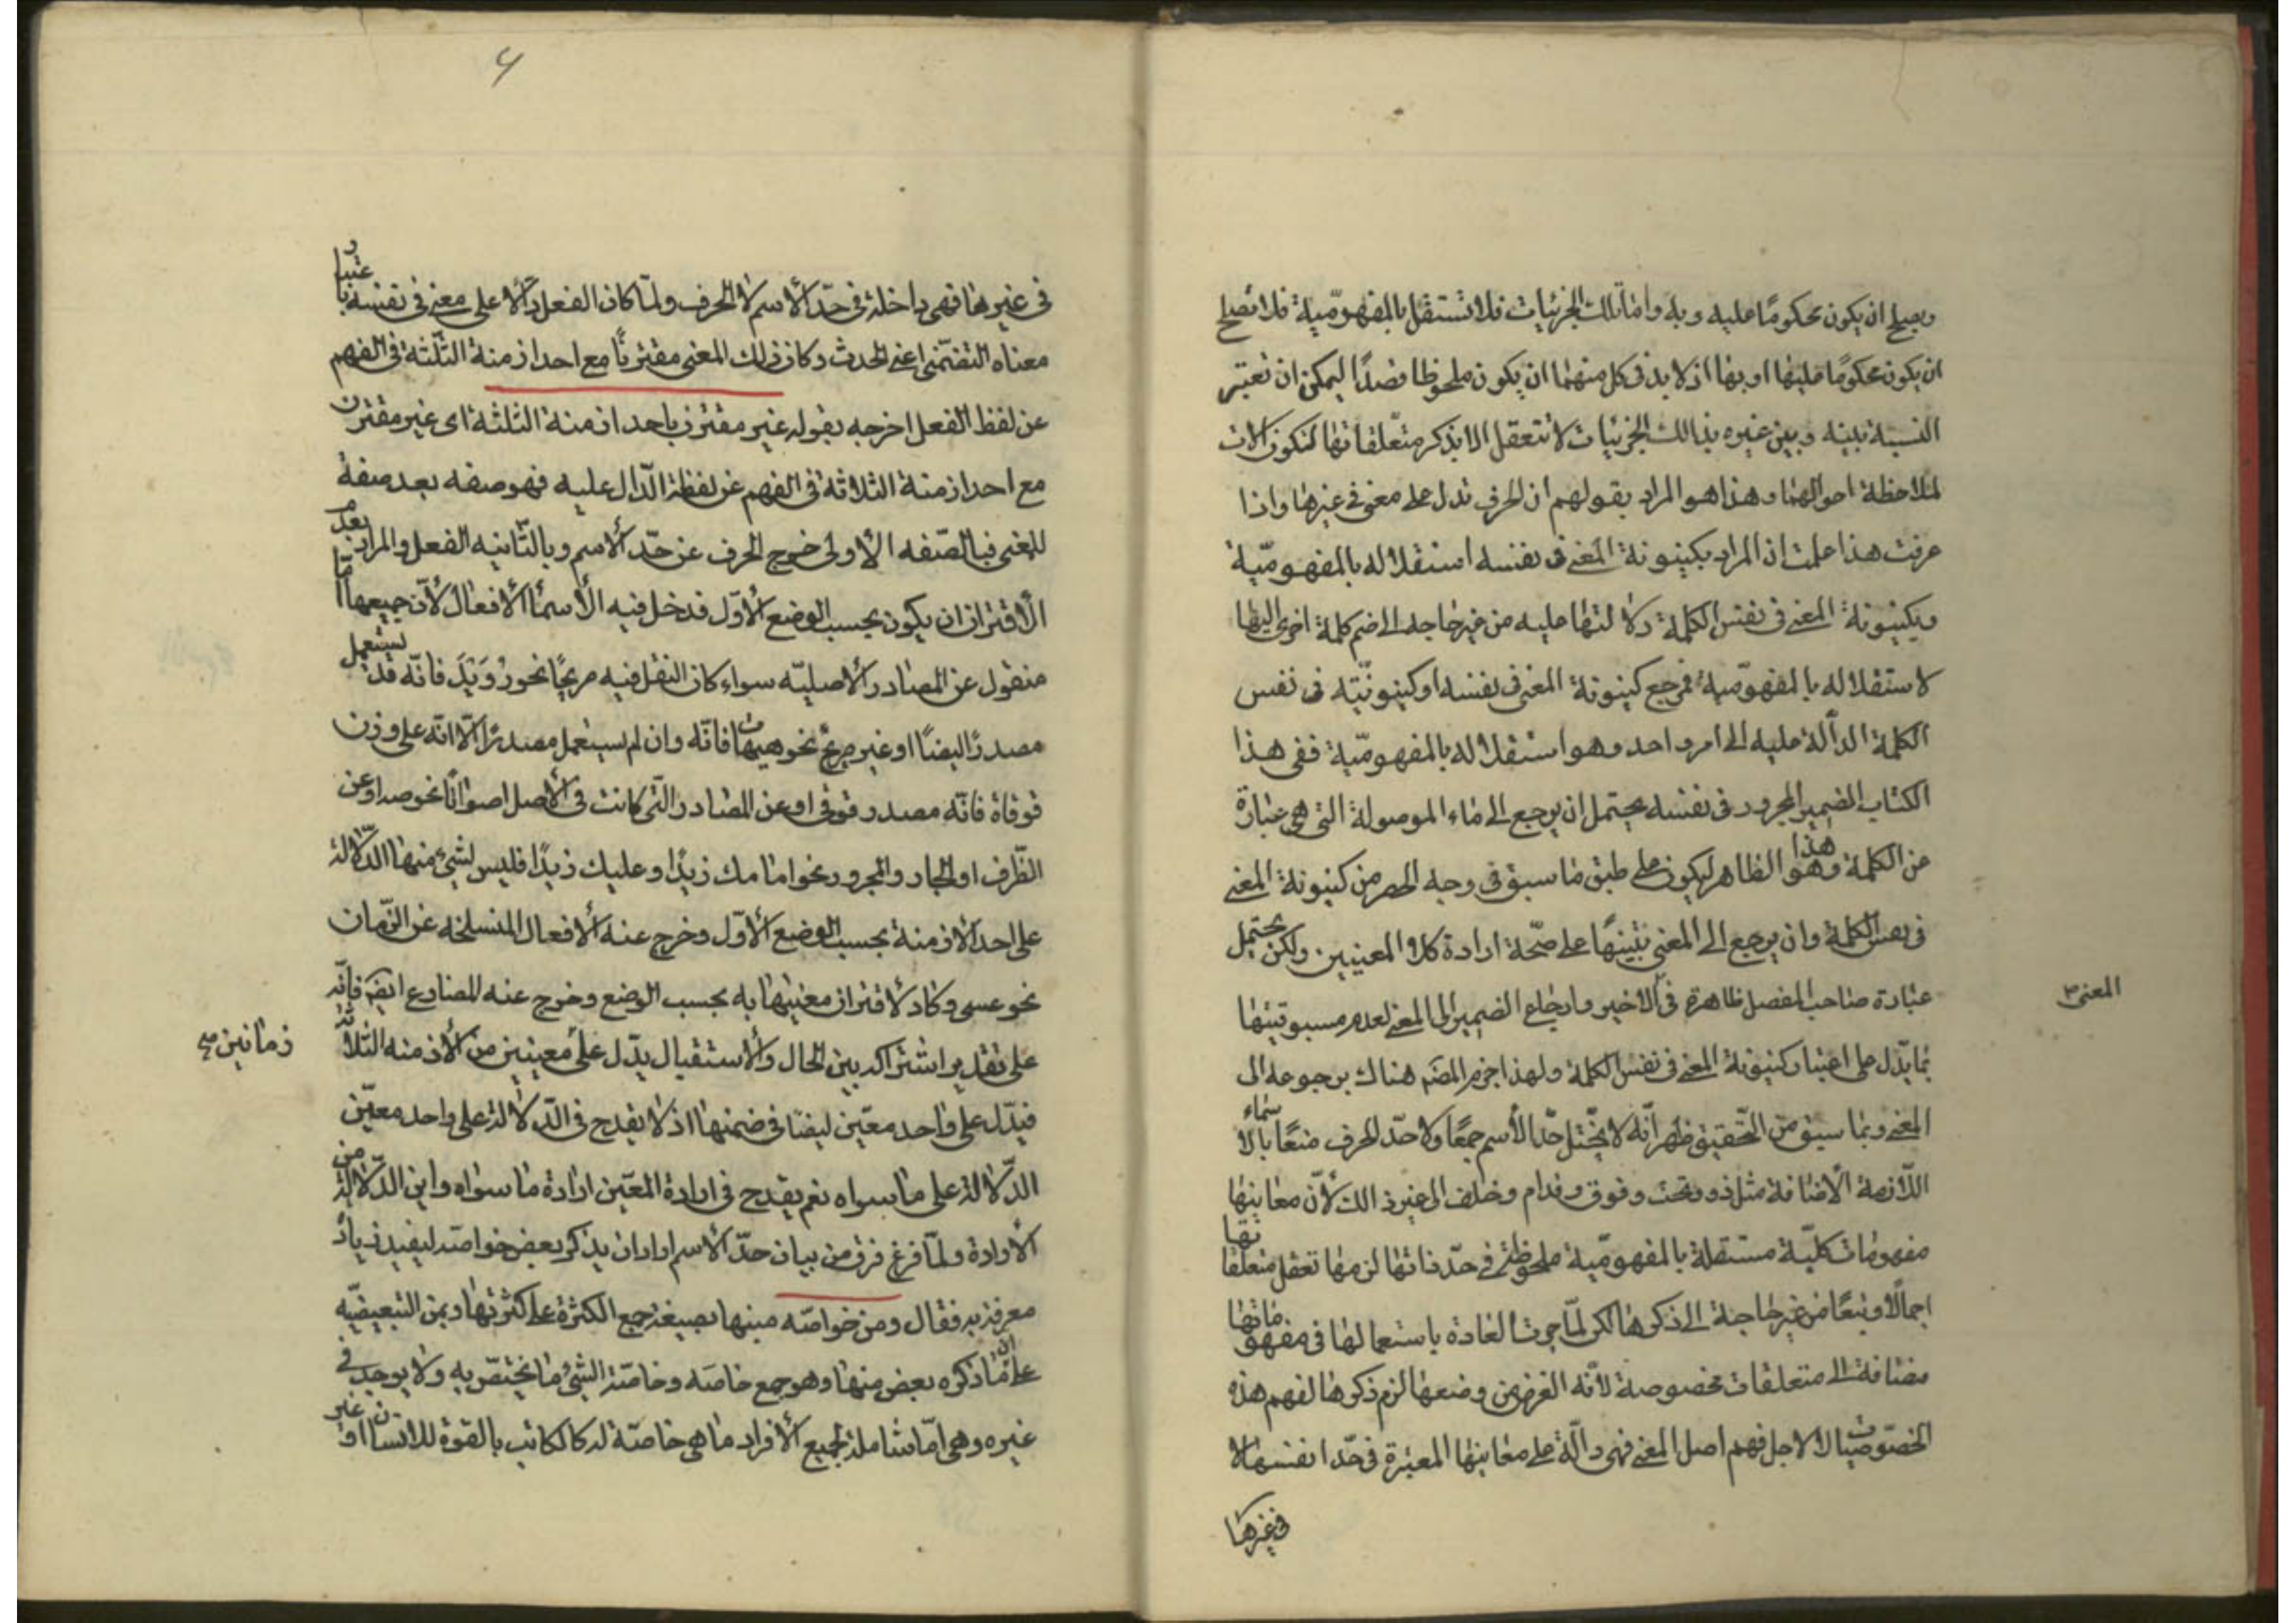 ويصح ان يكون محكومًا عليه وبه واما تلك الجزئيات فلا تستقل بالمفهوميّة فلا تصلح
ان يكون محكومًا عليها او بها اذ لا بد فى كل منهما ان يكون ملحوظا قصدًا ليمكن ان تعتبر
النسبة بينه وبين غيره بذالك الجزئيات لا تتعقل الا بذكر متعلقاتها لتكون الات
لملاحظة احوالها وهذا هو المراد بقولهم ان الحرف تدل على معنى فى غيرها واذا
عرفت هذا علمت ان المراد بكينونة المعنى فى نفسه استقلاله بالمفهوميّة
وبكينونة المعنى فى نفس الكلمة دلالتها عليه من غير حاجه الى ضم كلمة اخرى اليها
لاستقلاله بالمفهوميّة فمرجع كينونة المعنى فى نفسه او كينونته فى نفس
الكلمة الدالّة عليه الى امر واحد وهو استقلاله بالمفهوميّة ففى هذا
الكتاب الضمير المجرور فى نفسه يحتمل ان يرجع الى ماء الموصولة التى هى عبارة
من الكلمة وهذا هو الظاهر ليكون على طبق ما سبق فى وجه الحصر من كينونة المعنى
فى نفس الكلمة وان يرجع الى المعنى تنبيهًا على صحّة ارادة كلا المعنيين ولكن يحتمل
عبارة صاحب المفصل ظاهرة فى الاخير وارجاع الضمير الى المعنى لعدم مسبوقيتها
المعنى
بما يدّل على اعتبار كينونة المعنى فى نفس الكلمة ولهذا جزم المصَ هناك برجوعه الى
المعنى وبما سبق من التّحقيق ظهر انّه لا يختّل حدّ الأسم جمعًا ولا حدّ الحرف منعًا بالاسماء
اللّازمة الأضافة مثل ذو وتحت وفوق وقدام وخلف الى غير ذالك لأنّ معانيها
مفهومات كليّة مستقلة بالمفهوميّة ملحوظة فى حدّ ذاتها لزمها تعقل متعلقاتها
اجمالًا وتبعًا من غير حاجة الى ذكرها لكن لمّا جرت العادة باستعمالها فى مفهوماتها
مضافة الى متعلقات مخصوصة لأنه الغرض من وضعها لزم ذكرها لفهم هذه
الخصوصيات لا لاجل فهم اصل المعنى فهى دالّة على معانيها المعتبرة فى حدّ انفسها لا
فى غيرها
فى غيرها فهى داخلة فى حدّ الأسم لا الحرف ولمّا كان الفعل دالًّا على معنى فى نفسه باعتبار
معناه التضمّنى اعنى الحدث وكان ذلك المعنى مقترنًا مع احد ازمنة الثّلثة فى الفهم
عن لفظ الفعل اخرجه بقوله غير مقترن باحد ازمنة الثلثة اى غير مقترن
مع احد ازمنة الثلاثة فى الفهم عن لفظه الدّال عليه فهو صفه بعد صفة
للمعنى فبالصّفه الأولى خرج الحرف عن حدّ الأسم وبالثّانيه الفعل والمراد بعدم
الأقتران ان يكون بحسب الوضع الأوّل فدخل فيه الأسماء الأفعال لأنّ جميعها امّا
منقول عن المصادر الأصليّه سواء كان النقل فيه صريحًا نحو رُوَيْدَ فانّه قد يستعمل
مصدرًا ايضًا او غير صريح نحو هيهات فانّه وان لم يستعمل مصدرًا الّا انّه على وزن
قوقاة فانّه مصدر قوقى او عن المصادر الّتى كانت فى الأصل اصواتًا نحو صه او عن
الظّرف او الجار والمجرور نحو امامك زيدًا وعليك زيدًا فليس لشئ منها الدّلالة
على احد الأزمنة بحسب الوضع الأوّل وخرج عنه الأفعال المنسلخه عن الزّمان
نحو عسى وكاد لاقتران معنيها به بحسب الوضع وخرج عنه المضارع ايضَ فانّه
على تقدير اشتراكه بين الحال والأستقبال يدّل على معينين من الأزمنه الثلاثه
زمانين
فيدّل على واحد معيّن ايضًا فى ضمنها اذ لا يقدح فى الدّلالة على واحد معيّن
الدّلالة على ما سواه نعم يقدح فى ارادة المعيّن ارادة ما سواه واين الدّلالة من
الأرادة ولمّا فرغ من بيان حدّ الأسم اراد ان يذكر بعض خواصه ليفيد زيادة
معرفة به فقال ومن خواصّه مبنها بصيغة جمع الكثرة على كثرتها وبمن التبعيضيّه
على انّ ما ذكره بعض منها وهو جمع خاصّه وخاصّة الشئ ما يختصّ به ولا يوجد فى
غيره وهى امّا شاملة لجميع الأفراد ما هى خاصّة له كالكاتب بالقوة للانسان او غير